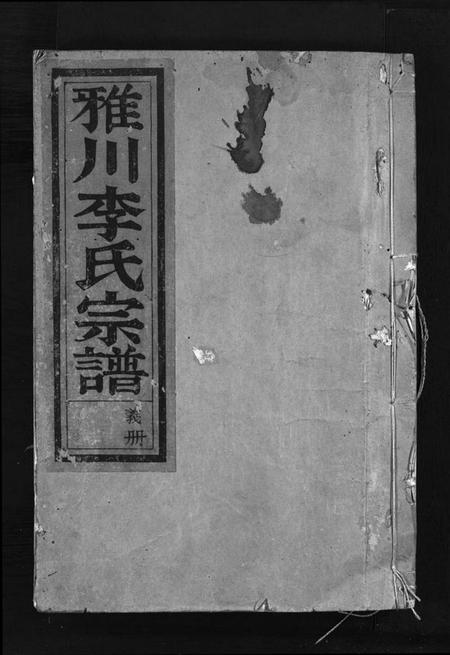 雅川李氏宗譜
義冊